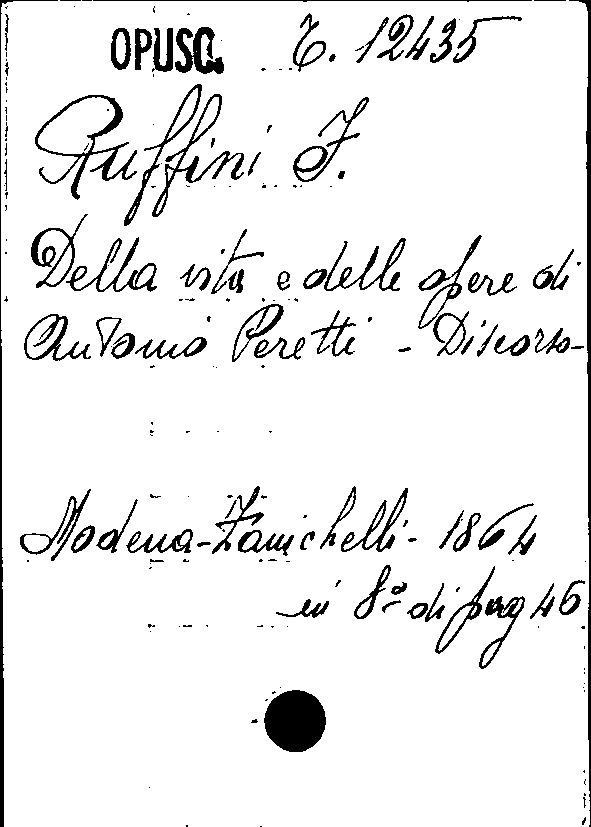 OPUSC. T. 12435
Ruffini F.
Della vita e delle opere di
Antonio Peretti - Discorso-
Modena-Zanichelli- 1864
in 8º di pag 46